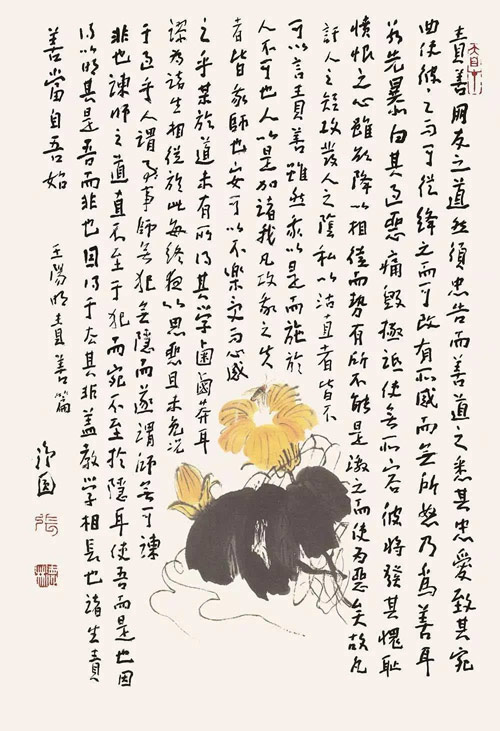 責善朋友之道然須忠告而善道之悉其忠愛致其宛
曲使彼之而可從繹之而可改有所感而無所怒乃為善耳
若先暴白其過惡痛毀極詆使無所容彼將發其愧恥
憤恨之心雖欲降以相從而勢有所不能是激之而使為惡矣故凡
訐人之短攻發人之陰私以沽直者皆不
可以言責善雖然我以是而施於
人不可也人以是加諸我凡攻我之失
者皆我師也安可以不樂受而心感
之乎某於道未有所得其學鹵鹵莽耳
謬為諸生相從於此每終夜以思惡且未免況
于過乎人謂事師無犯無隱而遂謂師無可諫
非也諫師之道直不至于犯而宛不至於隱耳使吾而是也因
得以明其是吾而非也因得于去其非蓋教學相長也諸生責
善當自吾始
王陽明責善篇